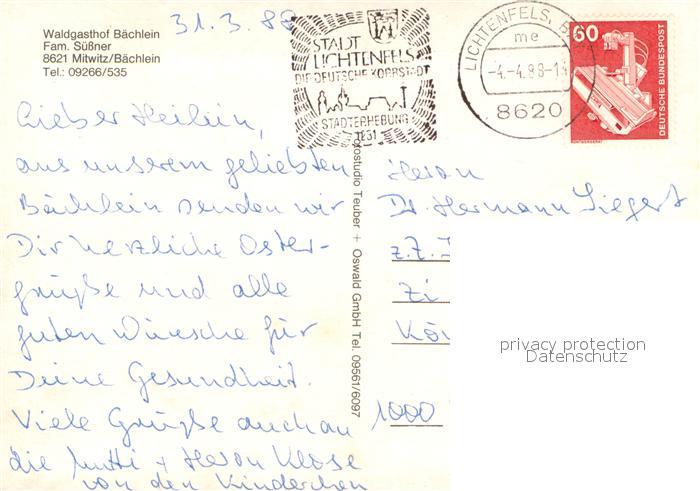 Waldgasthof Bächlein
Fam. Süßner
8621 Mitwitz/Bächlein
Tel.: 09266/535
31.3.88
STADT
LICHTENFELS
DIE DEUTSCHE KORBSTADT
STADTERHEBUNG
1231
LICHTENFELS, B
me
-4.-4.88-1
8620
60
DEUTSCHE BUNDESPOST
Lieber Heilein,
aus unserem geliebten
Bächlein senden wir
Dir herzliche Oster-
grüße und alle
guten Wünsche für
Deine Gesundheit.
Viele Grüße auch an
die Mutti + Herrn Klose
von den Kinderchen
Fotostudio Teuber + Oswald GmbH Tel. 09561/6097
Herrn
Dr. Hermann Siegert
z.Z.
Zi
Kön
1000
privacy protection
Datenschutz